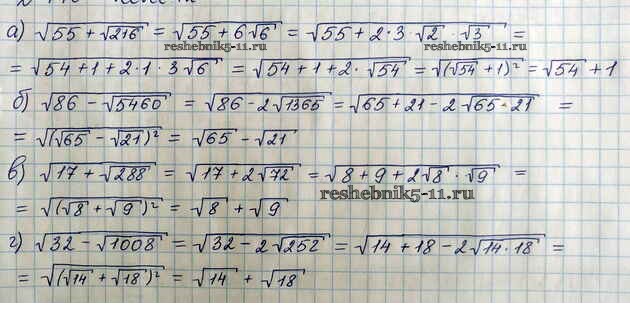 а) √(55 + √216) = √(55 + 6√6) = √(55 + 2·3·√2·√3) =
reshebnik5-11.ru
reshebnik5-11.ru
= √(54 + 1 + 2·1·3√6) = √(54 + 1 + 2·√54) = √((√54 + 1)²) = √54 + 1
б) √(86 - √5460) = √(86 - 2√1365) = √(65 + 21 - 2√(65·21)) =
= √((√65 - √21)²) = √65 - √21
в) √(17 + √288) = √(17 + 2√72) = √(8 + 9 + 2√8·√9) =
reshebnik5-11.ru
= √((√8 + √9)²) = √8 + √9
г) √(32 - √1008) = √(32 - 2√252) = √(14 + 18 - 2√(14·18)) =
= √((√14 + √18)²) = √14 + √18